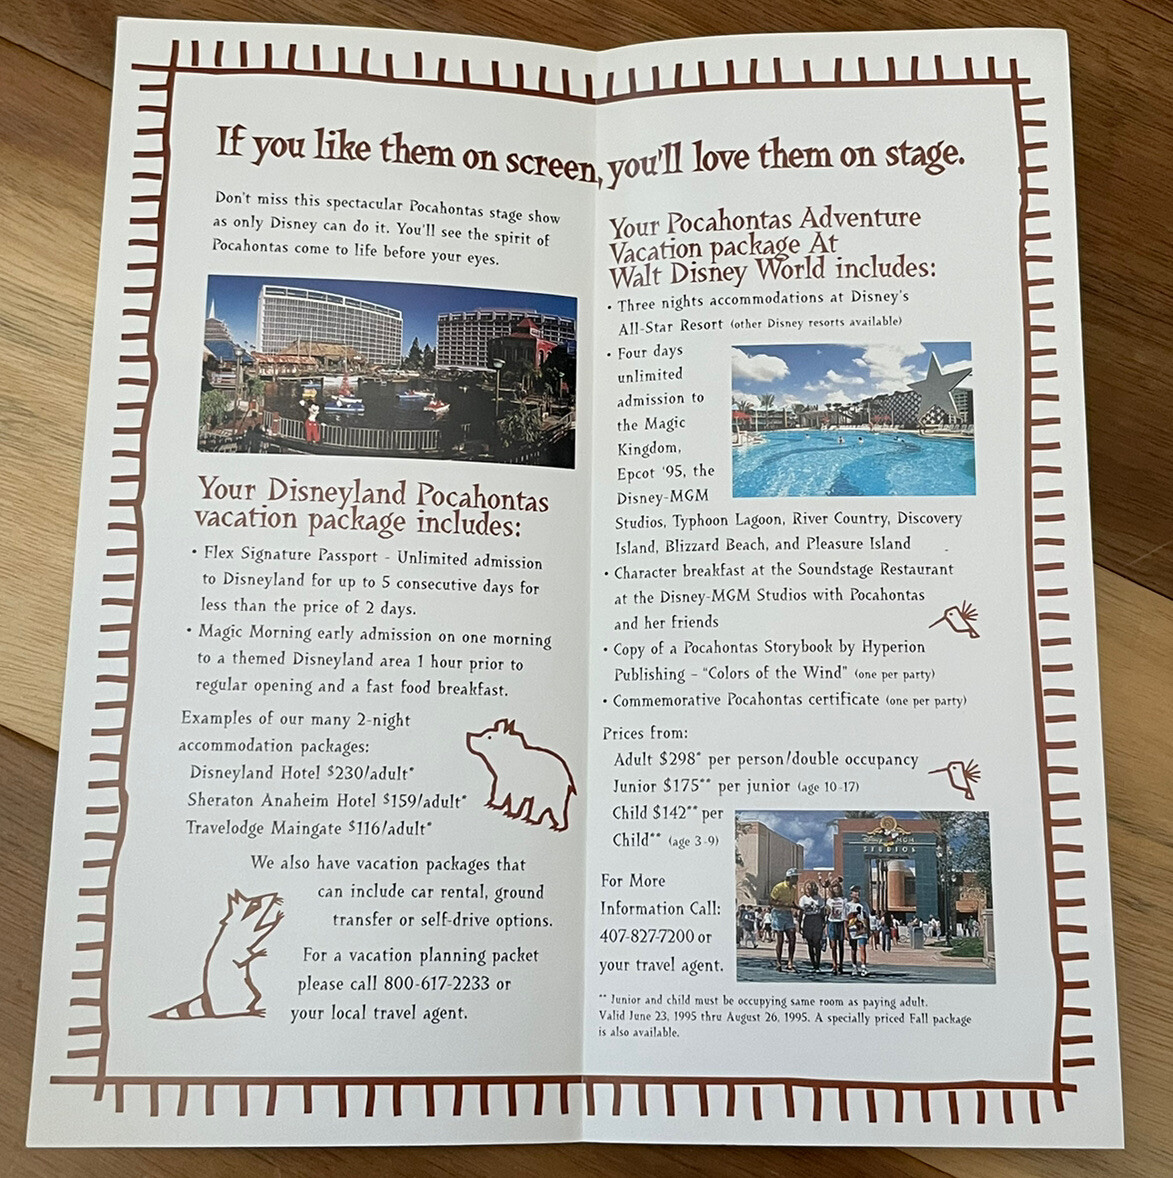 If you like them on screen, you'll love them on stage.
Don't miss this spectacular Pocahontas stage show
as only Disney can do it. You'll see the spirit of
Pocahontas come to life before your eyes.
Your Disneyland Pocahontas
vacation package includes:
• Flex Signature Passport - Unlimited admission
to Disneyland for up to 5 consecutive days for
less than the price of 2 days.
• Magic Morning early admission on one morning
to a themed Disneyland area 1 hour prior to
regular opening and a fast food breakfast.
Examples of our many 2-night
accommodation packages:
Disneyland Hotel $230/adult*
Sheraton Anaheim Hotel $159/adult*
Travelodge Maingate $116/adult*
We also have vacation packages that
can include car rental, ground
transfer or self-drive options.
For a vacation planning packet
please call 800-617-2233 or
your local travel agent.
Your Pocahontas Adventure
Vacation package At
Walt Disney World includes:
• Three nights accommodations at Disney's
All-Star Resort (other Disney resorts available)
• Four days
unlimited
admission to
the Magic
Kingdom,
Epcot '95, the
Disney-MGM
Studios, Typhoon Lagoon, River Country, Discovery
Island, Blizzard Beach, and Pleasure Island
• Character breakfast at the Soundstage Restaurant
at the Disney-MGM Studios with Pocahontas
and her friends
• Copy of a Pocahontas Storybook by Hyperion
Publishing - "Colors of the Wind" (one per party)
• Commemorative Pocahontas certificate (one per party)
Prices from:
Adult $298* per person/double occupancy
Junior $175** per junior (age 10-17)
Child $142** per
Child** (age 3-9)
Disney MGM
STUDIOS
For More
Information Call:
407-827-7200 or
your travel agent.
** Junior and child must be occupying same room as paying adult.
Valid June 23, 1995 thru August 26, 1995. A specially priced Fall package
is also available.